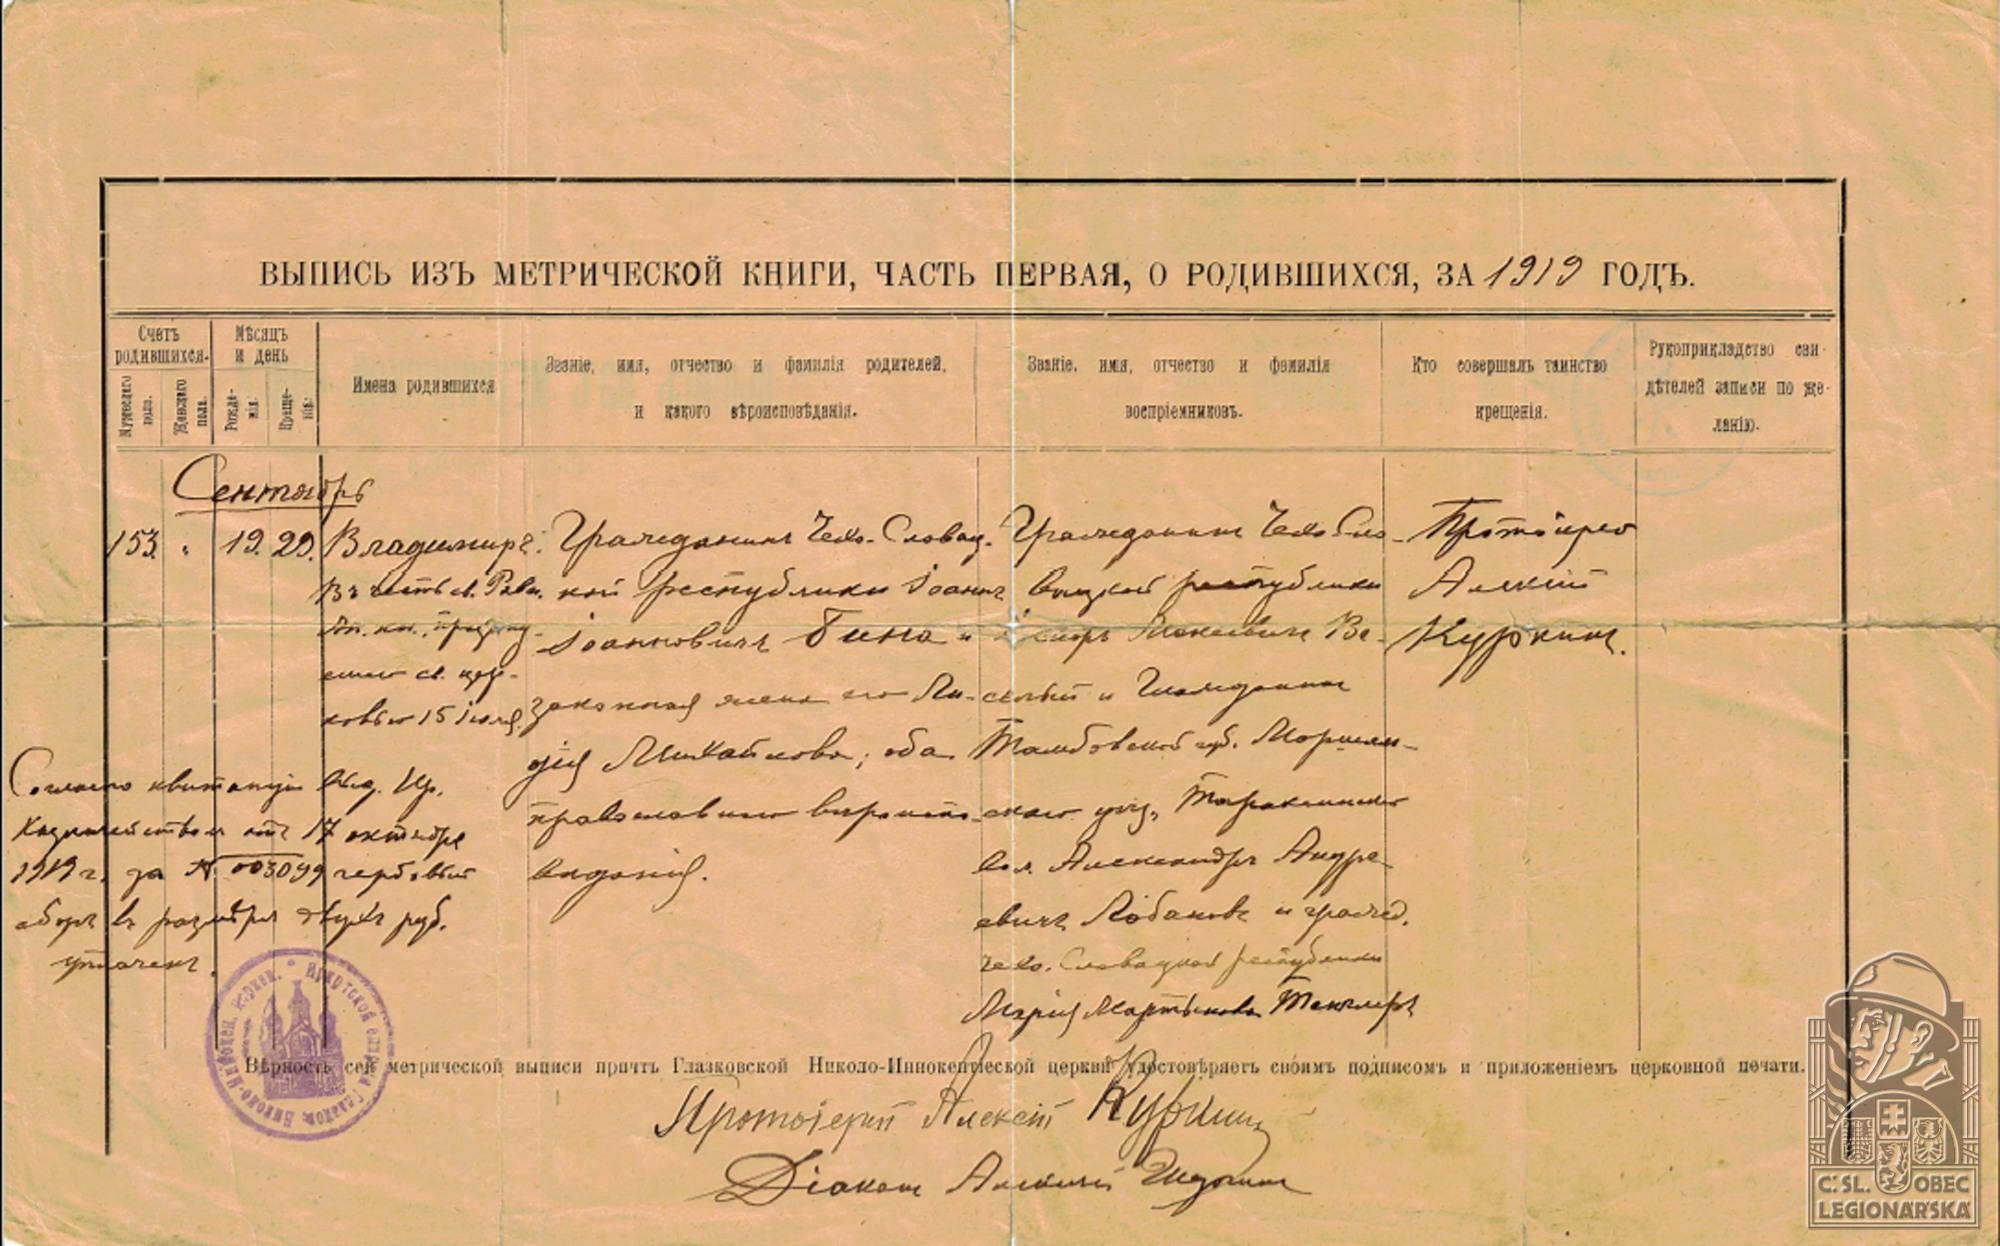 ВЫПИСЬ ИЗЪ МЕТРИЧЕСКОЙ КНИГИ, ЧАСТЬ ПЕРВАЯ, О РОДИВШИХСЯ, ЗА 1919 ГОДЪ.
Счетъ родившихся.
Мужескаго пола.
Женскаго пола.
Мѣсяцъ и день
Рожденія.
Крещенія.
Имена родившихся
Званіе, имя, отчество и фамилія родителей,
и какого вѣроисповѣданія.
Званіе, имя, отчество и фамилія
воспріемниковъ.
Кто совершалъ таинство
крещенія.
Рукоприкладство сви-
дѣтелей записи по же-
ланію.
Сентябрь
153. " 19. 29.
Владимиръ.
Въ честь св. Равн.
Ап. кн., праздну-
емаго св. цер-
ковью 15 іюля.
Гражданинъ Чехо-Словац-
кой республики Іоаннъ
Іоанновичъ Бина и
законная жена его Ли-
дія Михайлова; оба
православнаго вѣроиспо-
вѣданія.
Гражданинъ Чехо Сло-
вацкой республики
Ве-
селый и Гражданинъ
Тамбовской губ. Моршан-
скаго уѣз.
вол. Александръ Андре
евичъ Лобановъ и гражд.
Чехо. Словацкой республики
Марія Мартынова
Протоіерей
Алексій
Куркинъ.
Согласно квитанціи Ир.
Казначейства отъ 17 октября
1919 г. за № 003099 гербовый
сборъ въ размѣрѣ двухъ руб.
уплаченъ.
Вѣрность сей метрической выписи причтъ Глазковской Николо-Иннокентіеской церкви удостовѣряетъ своимъ подписомъ и приложеніемъ церковной печати.
Протоіерей Алексій Куркинъ
Діаконъ Алексій
Č. SL. OBEC
LEGIONÁŘSKÁ